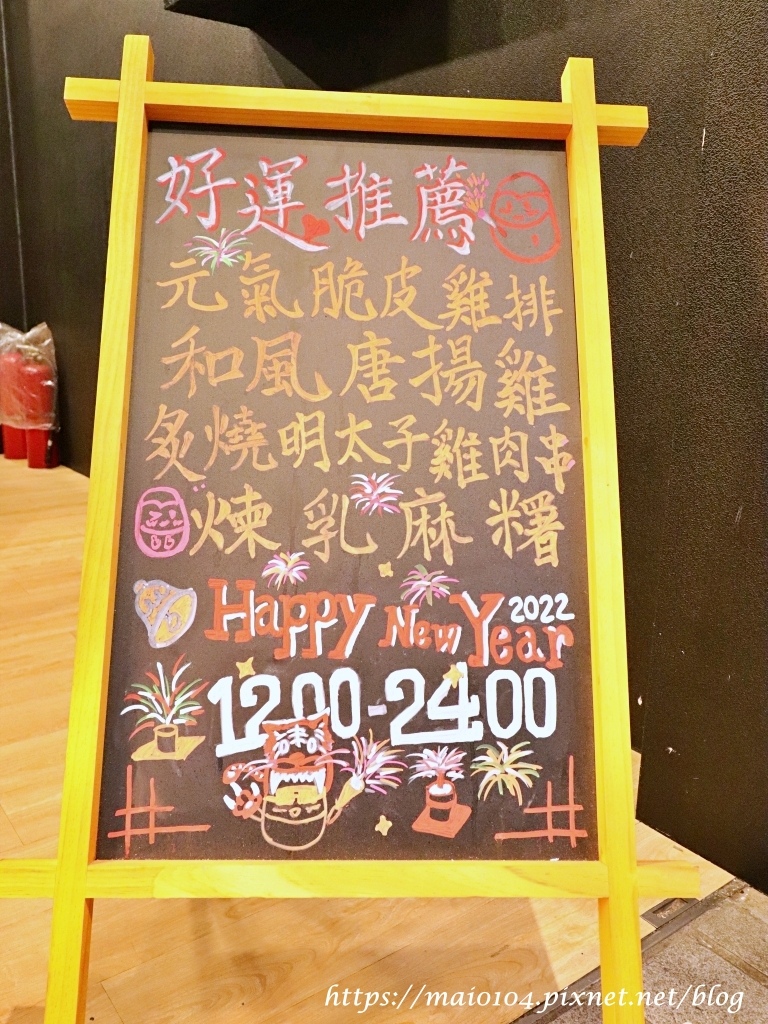 好運推薦
元氣脆皮雞排
和風唐揚雞
炙燒明太子雞肉串
煉乳麻糬
Happy New Year 2022
12:00-24:00
https://maio104.pixnet.net/blog